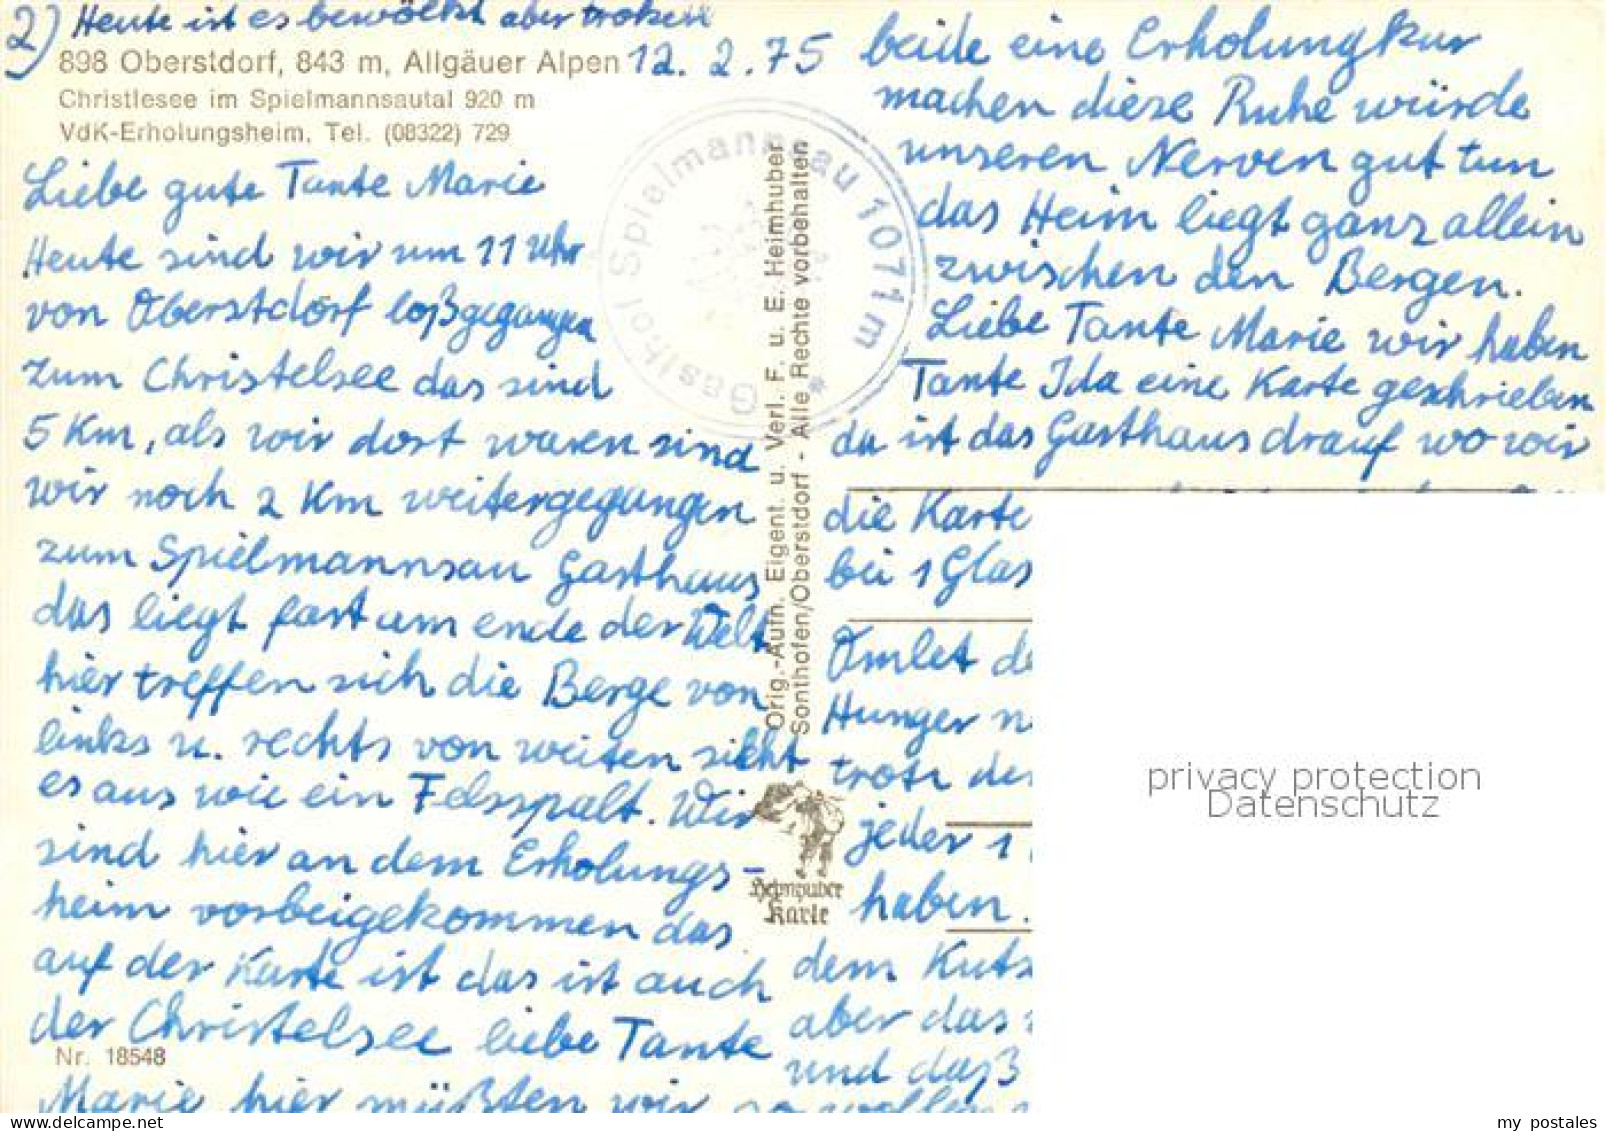 2) Heute ist es bewölkt aber troken
898 Oberstdorf, 843 m, Allgäuer Alpen 12. 2. 75
Christlesee im Spielmannsautal 920 m
VdK-Erholungsheim, Tel. (08322) 729
Liebe gute Tante Marie
Heute sind wir um 11 Uhr
von Oberstdorf loßgegangen
zum Christelsee das sind
5 Km, als wir dort waren sind
wir noch 2 Km weitergegangen
zum Spielmannsau Gasthaus
das liegt fast am ende der Welt
hier treffen sich die Berge von
links u. rechts von weiten sieht
es aus wie ein Felsspalt. Wir
sind hier an dem Erholungs-
heim vorbeigekommen das
auf der Karte ist das ist auch
der Christelsee liebe Tante
Nr. 18548
Marie hier müßten wir
Gasthof Spielmannsau 1071 m
Orig.-Aufn. Eigent. u. Verl. F. u. E. Heimhuber
Sonthofen/Oberstdorf - Alle Rechte vorbehalten
Heimhuber
Karte
beide eine Erholungkur
machen diese Ruhe würde
unseren Nerven gut tun
das Heim liegt ganz allein
zwischen den Bergen.
Liebe Tante Marie wir haben
Tante Ida eine Karte geschrieben
da ist das Gasthaus drauf wo wir
die Karte
bei 1 Glas
Omlet
Hunger
trotz
jeder 1
haben.
dem
aber das
und daß
wollen
privacy protection
Datenschutz
my postales